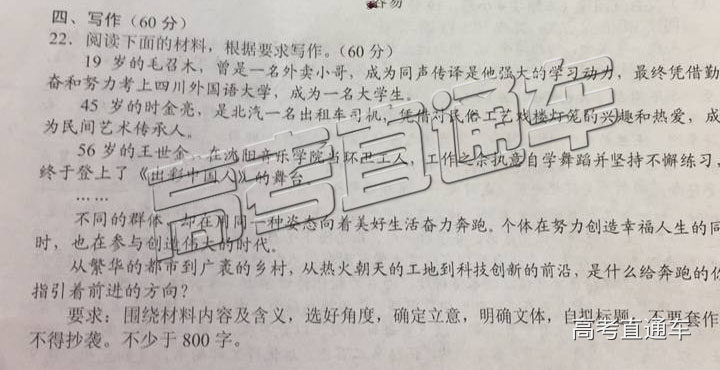 容易
四、写作（60分）
22．阅读下面的材料，根据要求写作。（60分）
19 岁的毛召木，曾是一名外卖小哥，成为同声传译是他强大的学习动力，最终凭借勤
奋和努力考上四川外国语大学，成为一名大学生。
45 岁的时金亮，是北汽一名出租车司机，凭借对民俗工艺戏楼灯笼的兴趣和热爱，成
为民间艺术传承人。
56 岁的王世金，在沈阳音乐学院当环卫工人，工作之余执意自学舞蹈并坚持不懈练习，
终于登上了《出彩中国人》的舞台。
……
不同的群体，却在用同一种姿态向着美好生活奋力奔跑。个体在努力创造幸福人生的同
时，也在参与创造伟大的时代。
从繁华的都市到广袤的乡村，从热火朝天的工地到科技创新的前沿，是什么给奔跑的你
指引着前进的方向？
要求：围绕材料内容及含义，选好角度，确定立意，明确文体，自拟标题，不要套作
不得抄袭。不少于 800 字。
高考直通车
高考直通车